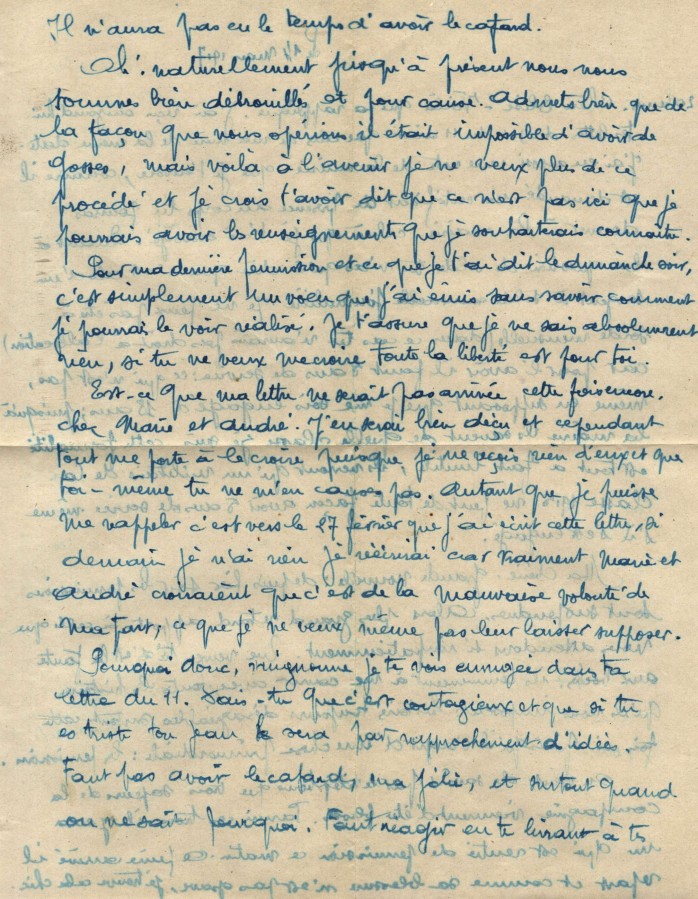 Il n'aura pas eu le temps d'avoir le cafard.
Oh! naturellement jusqu'à présent nous nous
sommes bien débrouillés et pour cause. Admets bien que de
la façon que nous operions il était impossible d'avoir de
gosses, mais voilà à l'avenir je ne veux plus de ce
procédé et je crois t'avoir dit que ce n'est pas ici que je
pourrais avoir les renseignements que je souhaiterais connaitre.
Pour ma dernière permission et ce que je t'ai dit le dimanche soir,
c'est simplement un voeu que j'ai émis sans savoir comment
je pourrais le voir réalisé. Je t'assure que je ne sais absolument
rien, si tu ne veux me croire toute la liberté est pour toi.
Est-ce que ma lettre ne serait pas arrivée cette fois encore
chez Marie et André. J'en serai bien déçu et cependant
tout me porte à le croire puisque je ne reçois rien d'eux et que
toi-même tu ne m'en causes pas. Autant que je puisse
me rappeler c'est vers le 17 février que j'ai écrit cette lettre, si
demain je n'ai rien je réécrirai car vraiment Marie et
André croiraient que c'est de la mauvaise volonté de
ma part, ce que je ne veux même pas leur laisser supposer.
Pourquoi donc, mignonne je te vois ennuyée dans ta
lettre du 11. Sais-tu que c'est contagieux et que si tu
es triste ton jean le sera par rapprochement d'idées.
Faut pas avoir le cafard, ma jolie, et surtout quand
on ne sait pourquoi. Faut réagir en te livrant à tes